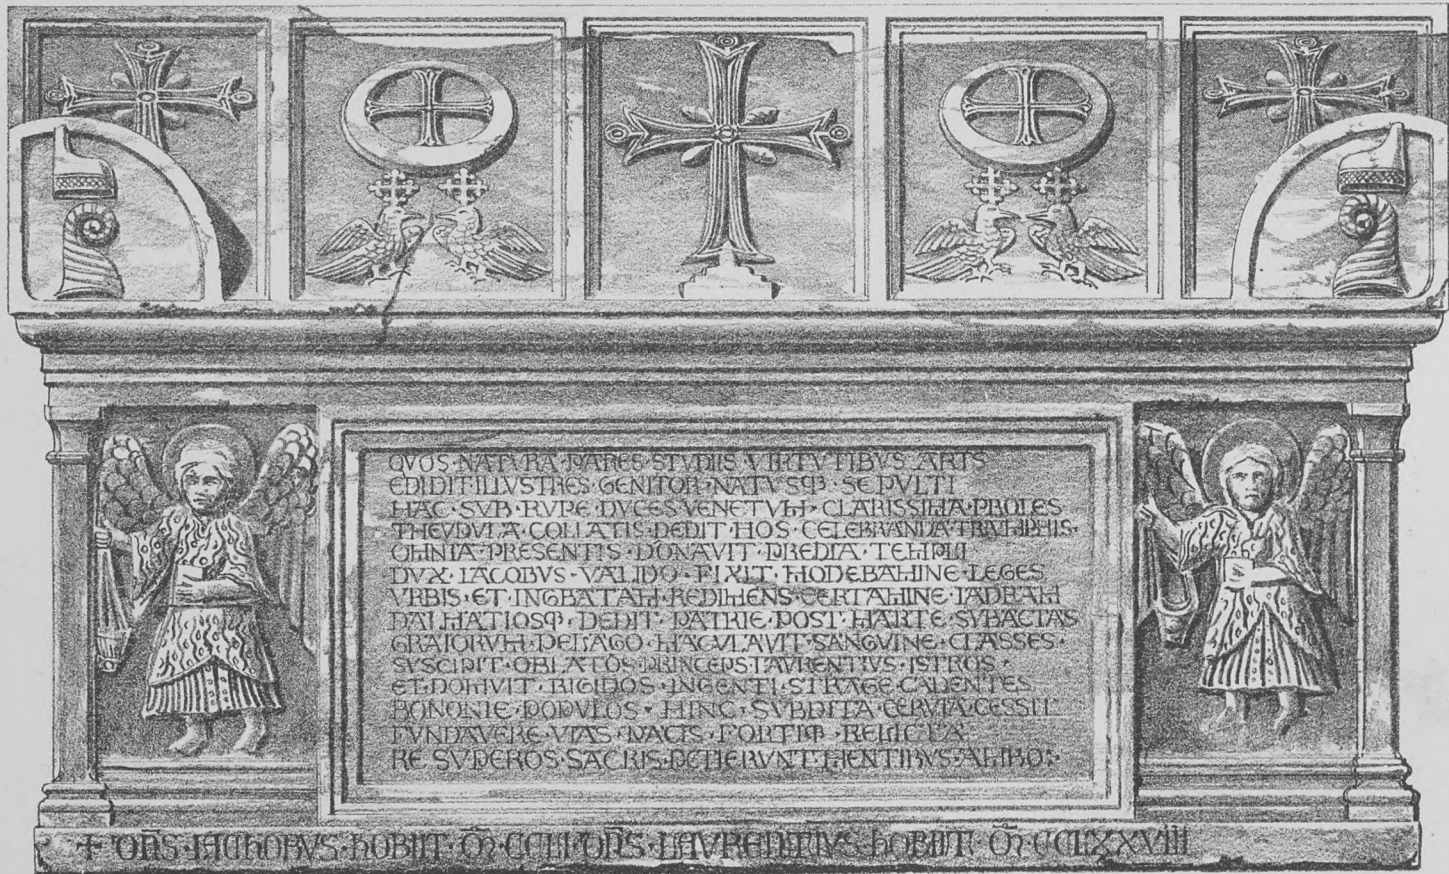 QVOS·NATVRA·PARES·STVDIIS VIRTVTIBVS ARTS
EDIDIT·ILLVSTRES·GENITOR·NATVSQB·SEPVLTI
HAC·SVB·RVPE·DVCES·VENETVM·CLARISSIMA·PROLES
THEVDVLA·COLLATIS·DEDIT·HOS·CELEBRANDA·TRIVMPHIS·
OMNIA·PRESENTIS·DONAVIT·PREDIA·TEMPLI
DVX·IACOBVS·VALIDO·FIXIT·MODERAMINE·LEGES
VRBIS·ET·INGRATAM·REDIMENS·CERTAMINE·IADRAM
DALMATIOSQ·DEDIT·PATRIE·POST·MARTE·SVBACTAS
GRAIORVM·PELAGO·MACVLAVIT·SANGVINE·CLASSES·
SVSCIPIT·OBLATOS·PRINCEPS·LAVRENTIVS·ISTROS·
ET·DOMVIT·RIGIDOS·INGENTI·STRAGE·CADENTES
BONONIE·POPVLOS·HINC·SVBDITA·CERVIA·CESSIT
FVNDAVERE·VIAS·PACIS·FORTIQB·RELICTA
RE·SVPEROS·SACRIS·PETIERVNT·MENTIBVS·AMBO:·
+ DN̄S·IACHOBVS·HOBIIT·M̄·CCLI·DN̄S·LAVRENTIVS·HOBIIT·M̄·CCLXXVIII